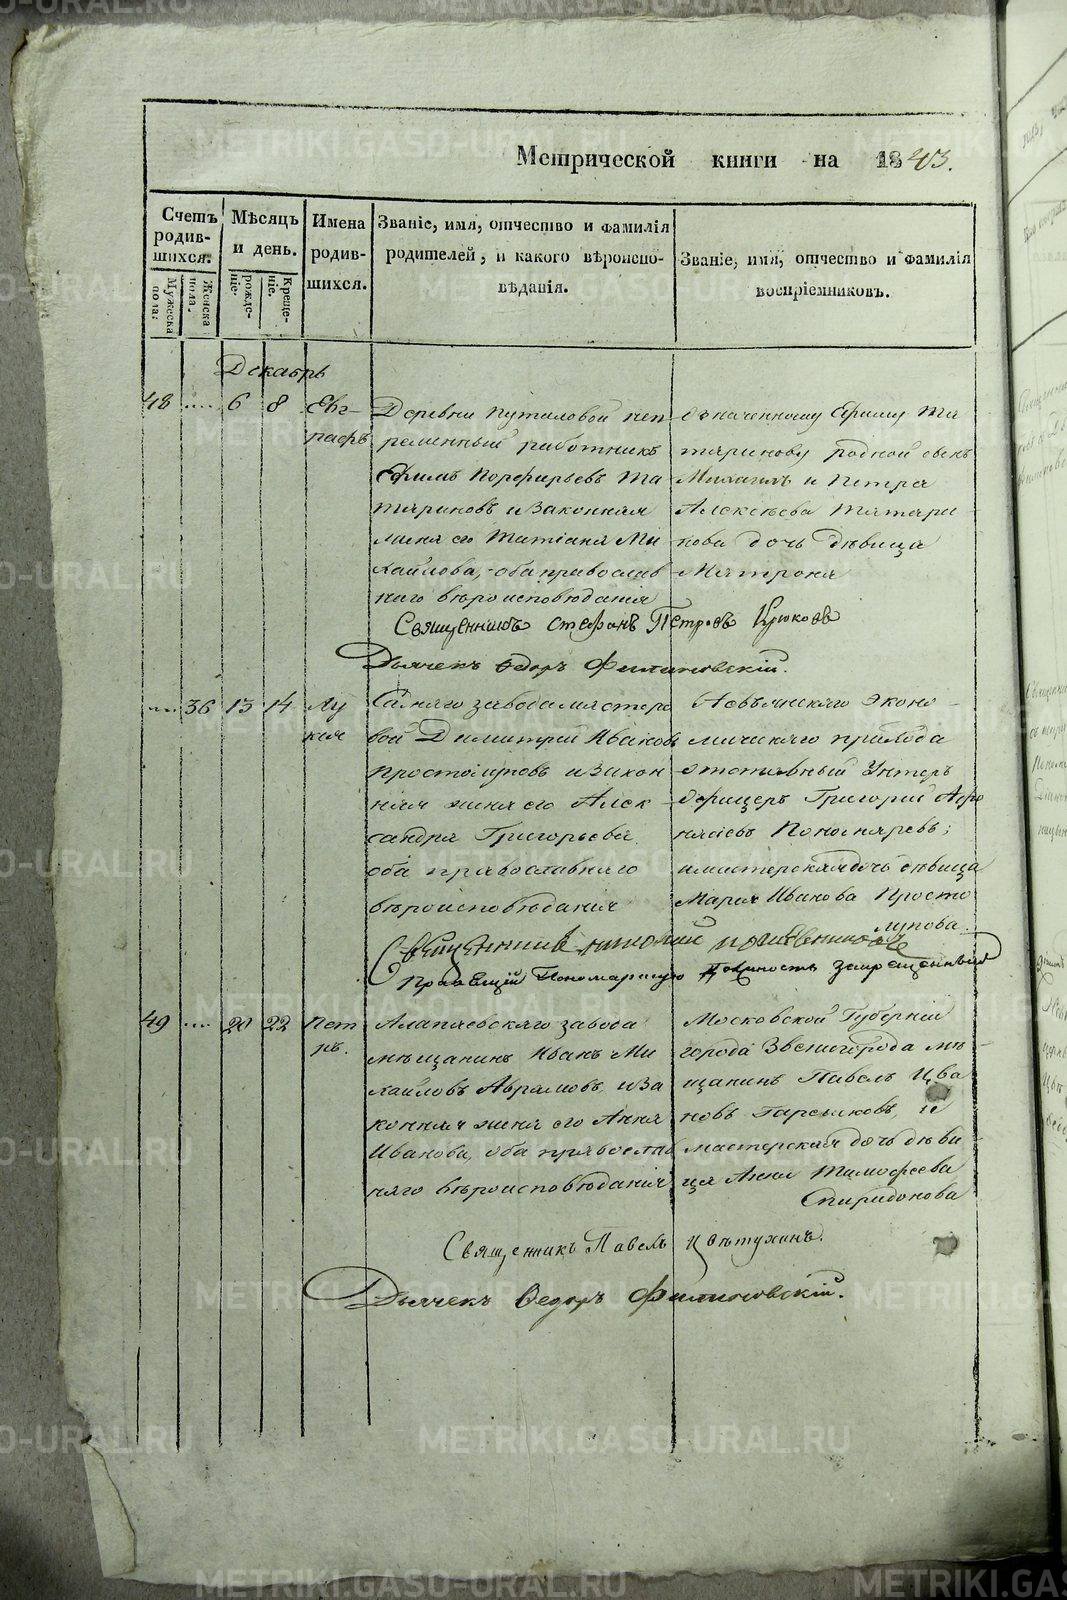 METRIKI.GASO-URAL.RU
Метрической книги на 1843.
Счетъ родив-шихся.
Мужеска пола.
Женска пола.
Мѣсяцъ и день.
рожде-ніе.
Креще-ніе.
Имена родив-шихся.
Званіе, имя, отчество и фамилія
родителей, и какого вѣроиспо-
вѣданія.
Званіе, имя, отчество и фамилія
воспріемниковъ.
Декабрь
48 .... 6 8 Евг-
рафъ
Деревни Путиловой неп
ременный работникъ
Ефимъ Порфирьевъ Та
тариновъ и законная
жена его Татіана Ми
хайлова, оба православ
наго вѣроисповѣданія
означенному Ефиму Та
таринову родной
Михаилъ и Петра
Алексѣева Татари
нова дочь дѣвица
Матрона
Священникъ Стефанъ Петровъ Крюковъ
Дьячекъ Ѳедоръ Филиповскій.
.... 36 13 14 Лу
кія
завода мастеро
вой Димитрій Иваковъ
и закон
ная жена его Алек
сандра Григорьева
оба православнаго
вѣроисповѣданія
эконо-
мическаго
отставный Унтеръ
офицеръ Григорій Афо
насіевъ Пономаревъ;
и мастерская дочь дѣвица
Марія Иванова Просто
лупова.
Священникъ
Правящій Пономарскую должность запрещенный
49 .... 20 22 Пет
ръ.
Алапаевскаго завода
мѣщанинъ Иванъ Ми
хайловъ Аврамовъ, и за
конная жена его Анна
Иванова, оба православ
наго вѣроисповѣданія
Московской Губерніи
города Звенигорода мѣ-
щанинъ Павелъ Ива
новъ и
мастерская дочь дѣви-
ца Анна Тимофеева
Спиридонова
Священникъ Павелъ Цвѣтухинъ.
Дьячекъ Ѳедоръ Филиповскій.